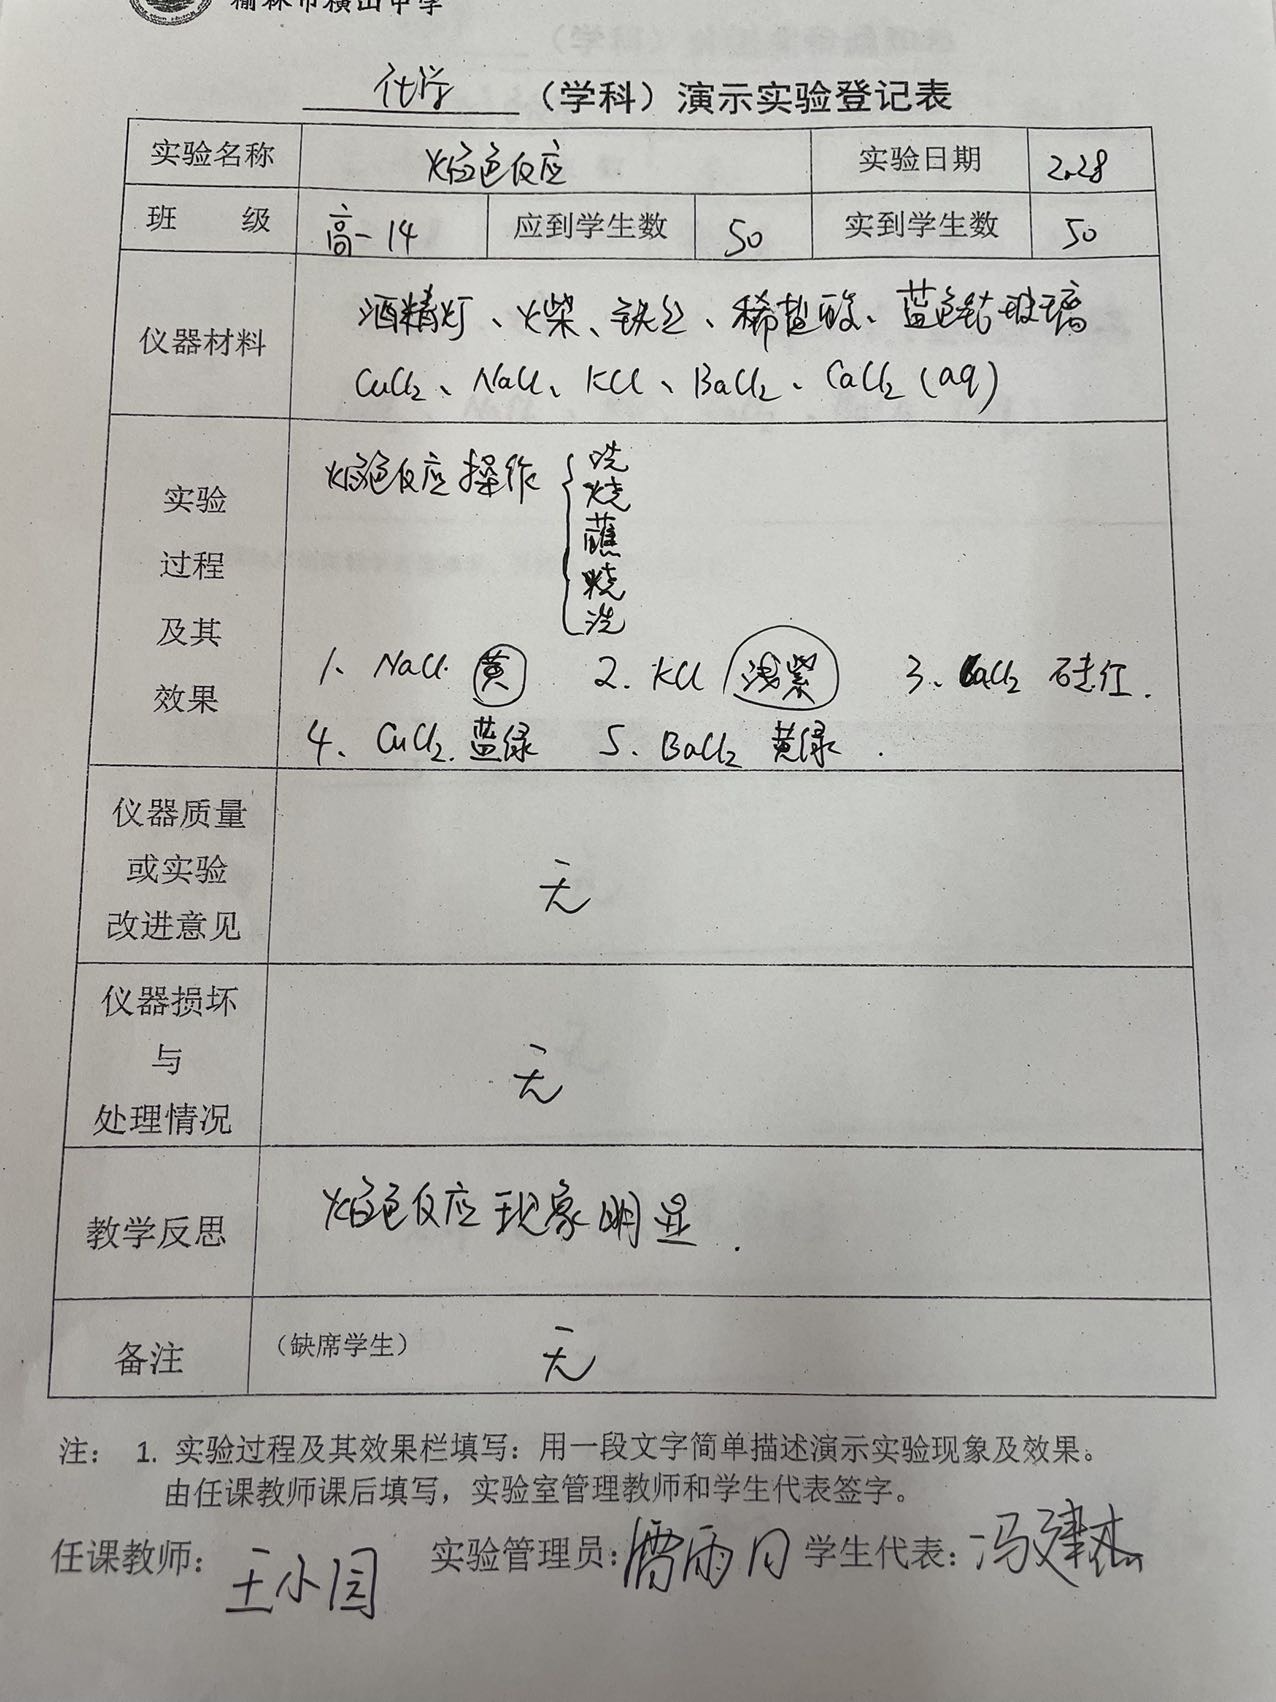 榆林市横山中学
化学（学科）演示实验登记表
实验名称 焰色反应 实验日期 2.28
班 级 高一14 应到学生数 50 实到学生数 50
仪器材料
酒精灯、火柴、铁丝、稀盐酸、蓝色钴玻璃
CuCl₂、NaCl、KCl、BaCl₂、CaCl₂(aq)
实验
过程
及其
效果
焰色反应操作
洗
烧
蘸
烧
洗
1、NaCl 黄 2. KCl 浅紫 3、CaCl₂ 砖红.
4、CuCl₂. 蓝绿 5、BaCl₂ 黄绿.
仪器质量
或实验
改进意见
无
仪器损坏
与
处理情况
无
教学反思 焰色反应现象明显.
备注 （缺席学生） 无
注： 1. 实验过程及其效果栏填写：用一段文字简单描述演示实验现象及效果。
由任课教师课后填写，实验室管理教师和学生代表签字。
任课教师：王小园 实验管理员：雨月 学生代表：冯建杰